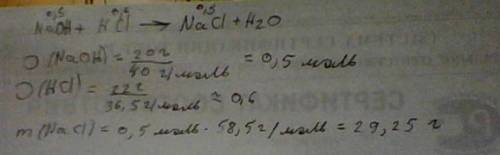 0,5 0,6 0,5
NaOH + HCl → NaCl + H2O
υ(NaOH) = 20г / 40 г/моль = 0,5 моль
υ(HCl) = 22г / 36,5г/моль ≈ 0,6
m(NaCl) = 0,5 моль · 58,5г/моль = 29,25 г